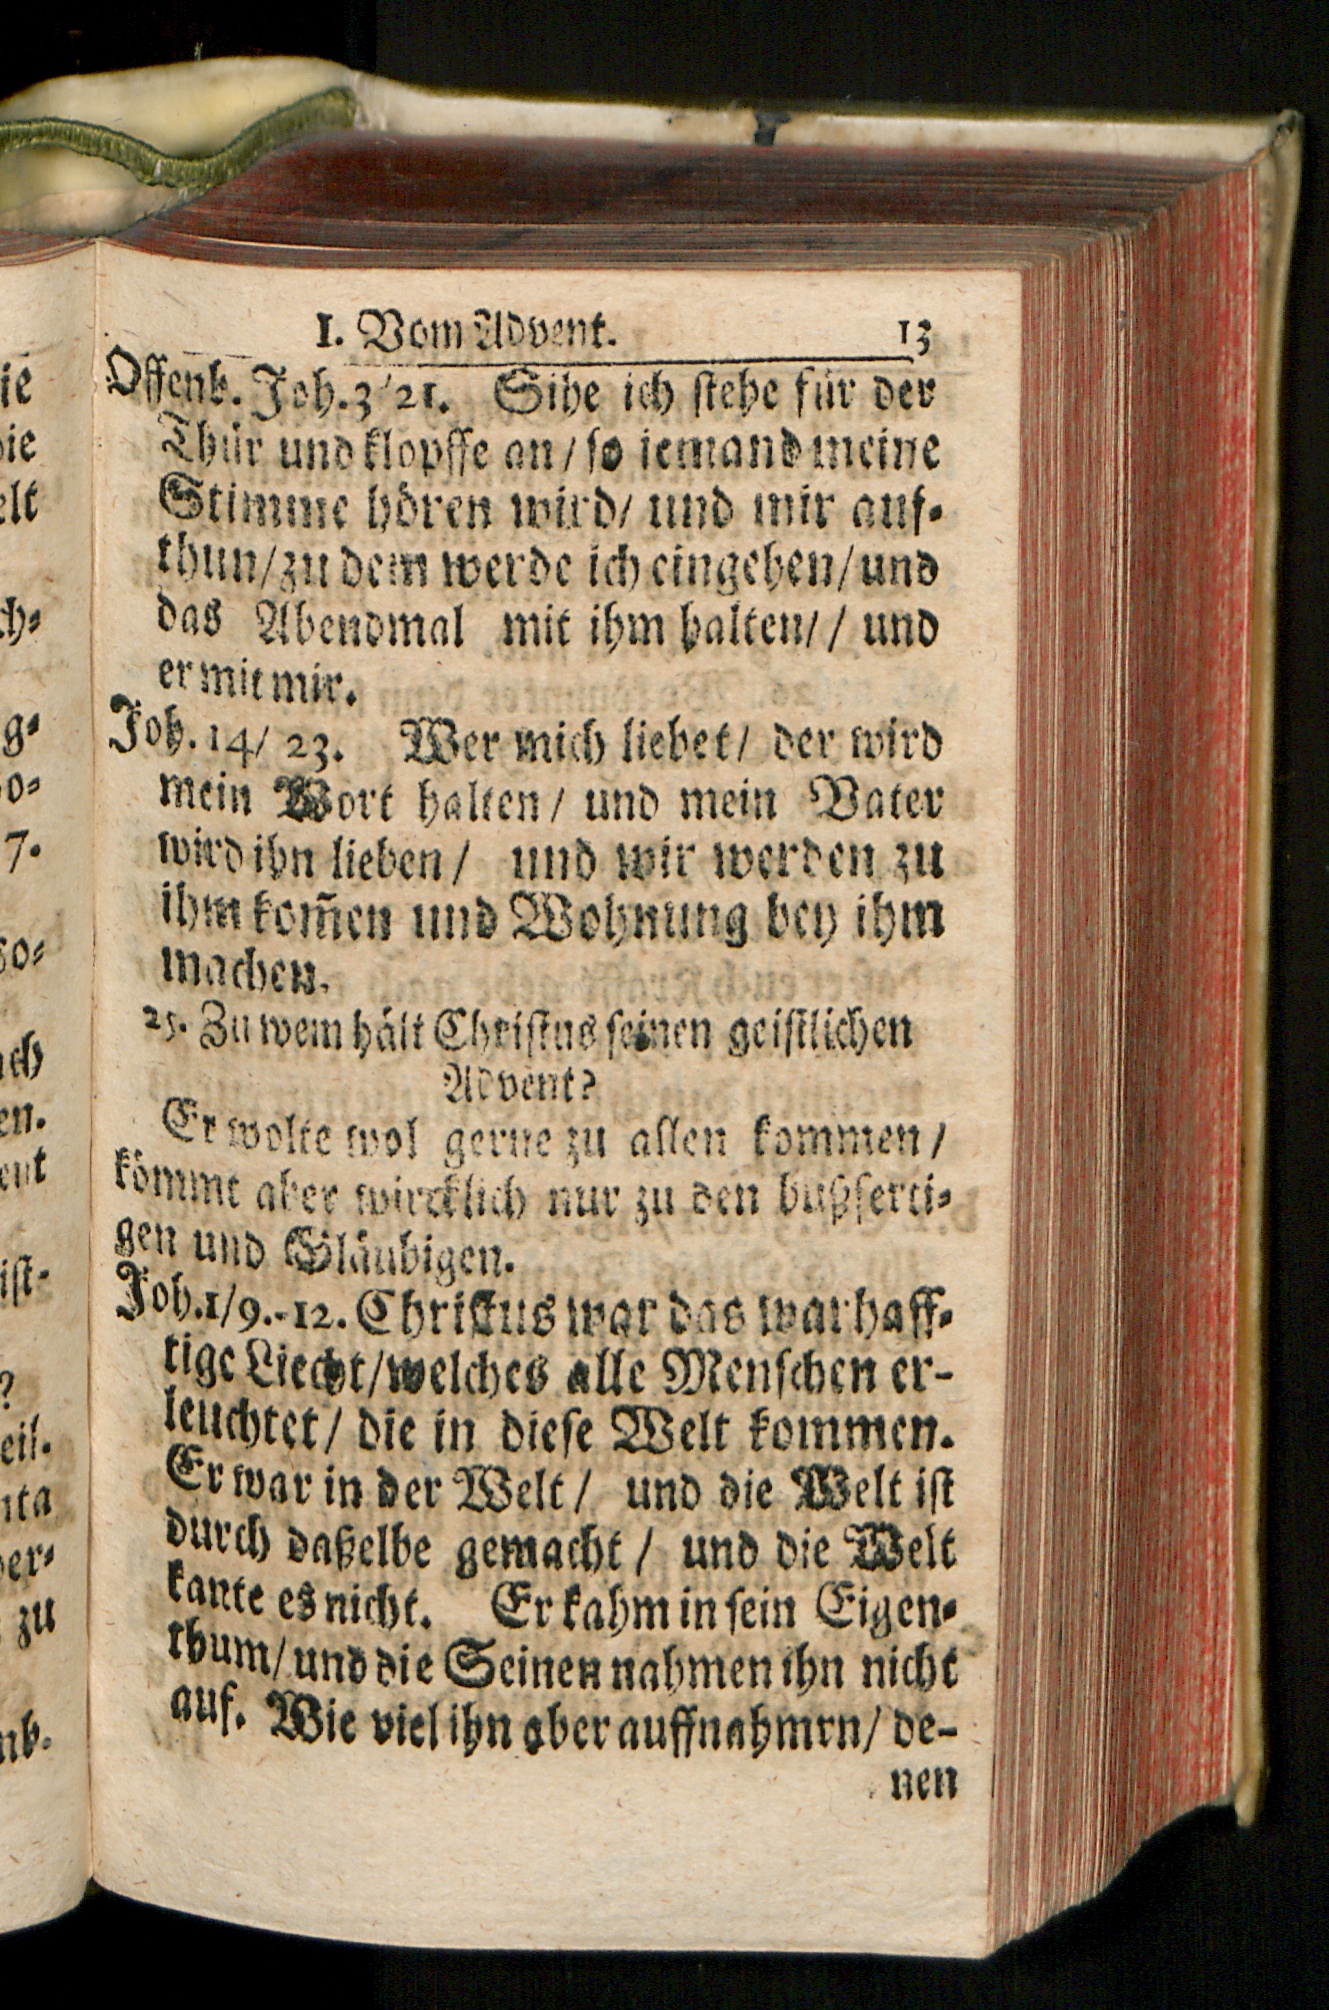 I. Vom Advent. 13
Offenb. Joh. 3/21. Sihe ich stehe für der
Thür und klopffe an / so iemand meine
Stimme hören wird/ und mir auf-
thun/zu dem werde ich eingehen/und
das Abendmal mit ihm halten// und
er mit mir.
Joh. 14/ 23. Wer mich liebet/ der wird
mein Wort halten/ und mein Vater
wird ihn lieben/ und wir werden zu
ihm kom̃en und Wohnung bey ihm
machen.
25. Zu wem hält Christus seinen geistlichen
Advent?
Er wolte wol gerne zu allen kommen/
kömmt aber wircklich nur zu den bußferti-
gen und Gläubigen.
Joh.1/9.-12. Christus war das warhaff-
tige Liecht/welches alle Menschen er-
leuchtet/ die in diese Welt kommen.
Er war in der Welt/ und die Welt ist
durch daßelbe gemacht / und die Welt
kante es nicht. Er kahm in sein Eigen-
thum/und die Seinen nahmen ihn nicht
auf. Wie viel ihn aber auffnahmrn/ de-
nen
ie
die
elt
ch-
g-
o-
7.
so-
ch
en.
ent
ist-
?
eil-
nta
er-
zu
nb.